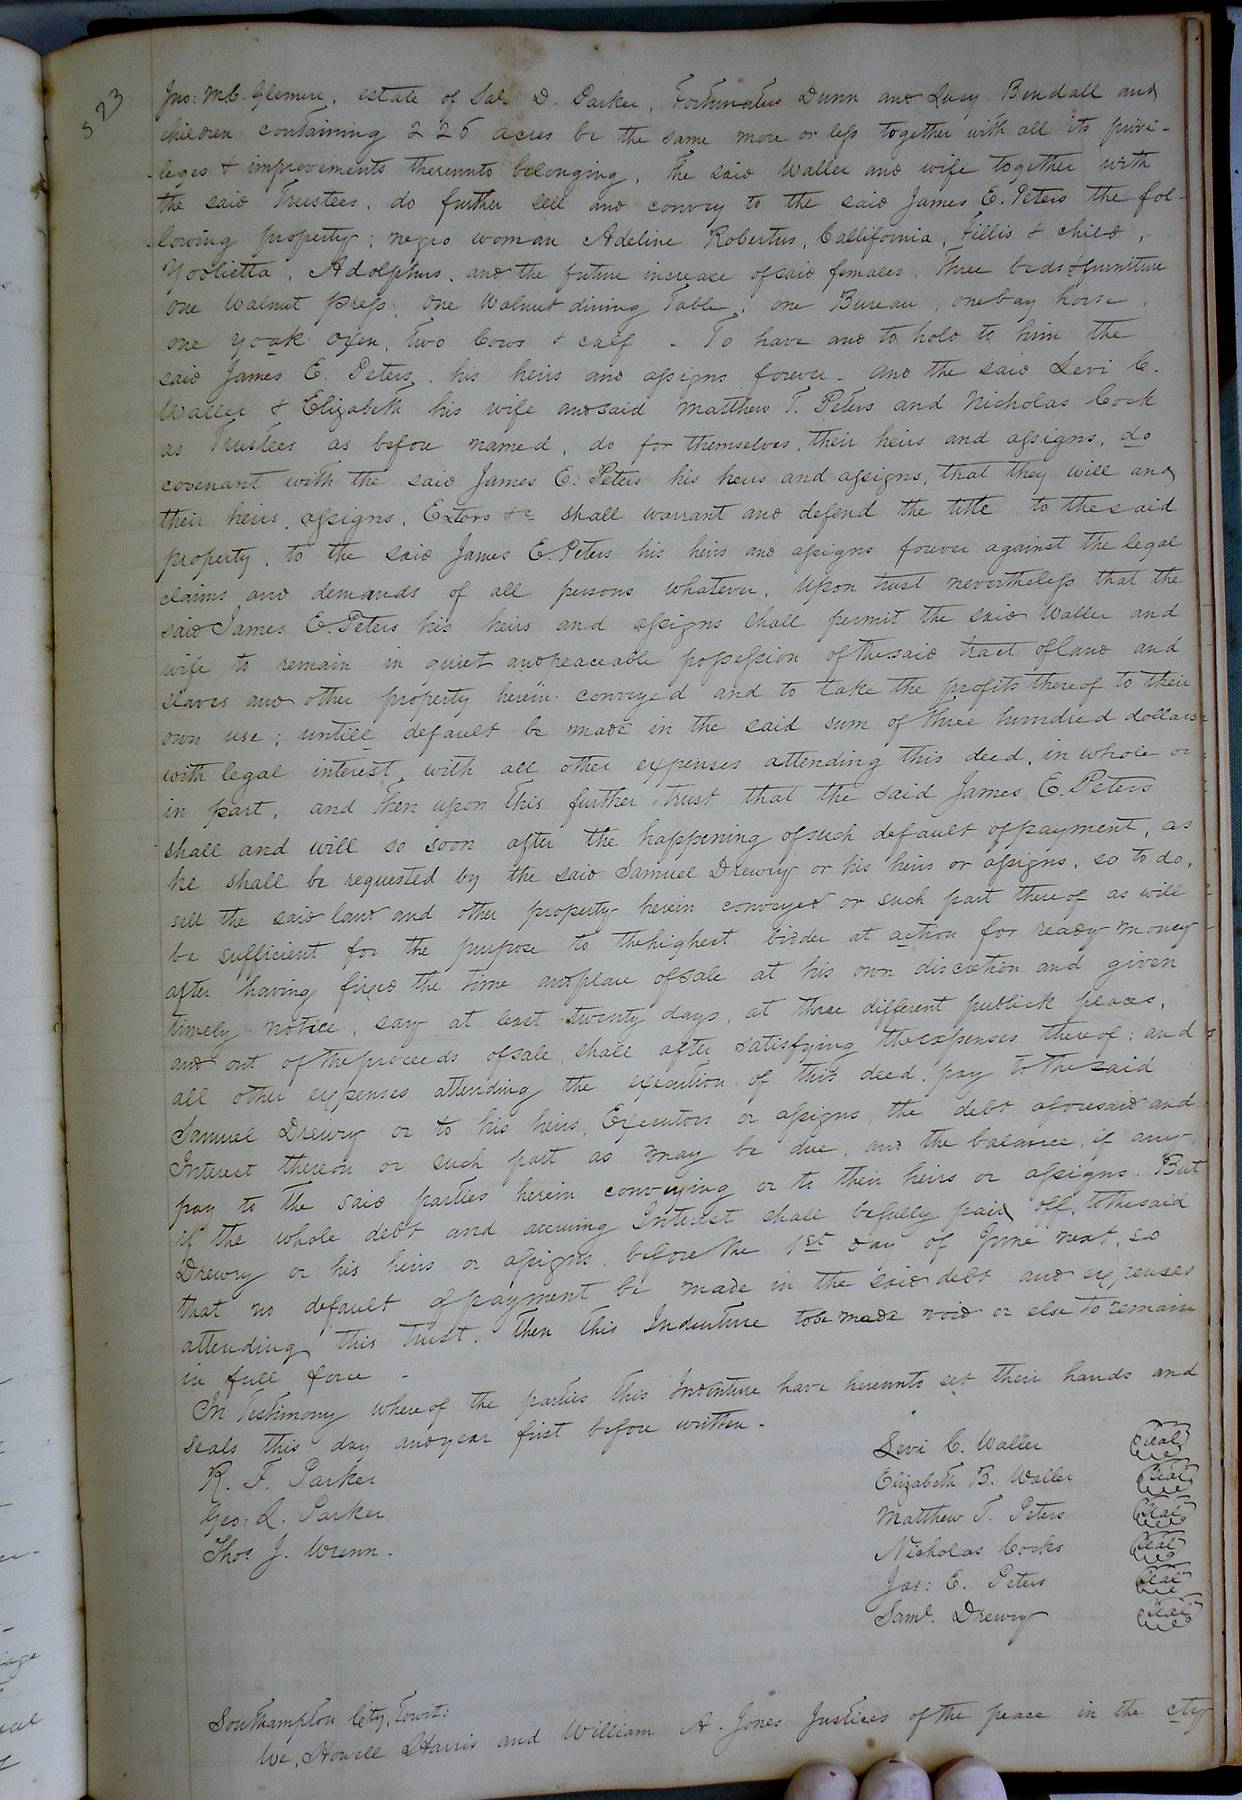 523
Jno: McC. Glemere, estate of Sal. D. Parker, Fortunatus Dunn and Lucy Bendall and
children containing 226 acres be the same more or less together with all its privi-
-leges & improvements thereunto belonging. The said Waller and wife together with
the said Trustees, do further sell and convey to the said James E. Peters the fol-
-lowing property; negro woman Adeline Robertus, Callifornia, Fillis & child,
Yoolietta, Adolphus, and the future increase of said females. Three beds & furniture
one walnut press, one Walnut dining Table, one Bureau, one bay horse,
one yoak oxen, two Cows & calf - To have and to hold to him the
said James E. Peters, his heirs and assigns forever - and the said Levi C.
Waller & Elizabeth his wife and said Matthew T. Peters and Nicholas Cock
as Trustees as before named, do for themselves, their heirs and assigns, do
covenant with the said James E. Peters his heirs and assigns, that they will and
their heirs, assigns, Extors &c shall warrant and defend the title to the said
property, to the said James E. Peters his heirs and assigns forever against the legal
claims and demands of all persons whatever. Upon trust nevertheless that the
said James E. Peters his heirs and assigns shall permit the said Waller and
wife to remain in quiet and peaceable possession of the said tract of land and
slaves and other property herein conveyed and to take the profits thereof to their
own use; untill default be made in the said sum of three hundred dollars
with legal interest, with all other expenses attending this deed, in whole or
in part, and then upon this further trust that the said James E. Peters
shall and will so soon after the happening of such default of payment, as
he shall be requested by the said Samuel Drewry or his heirs or assigns, so to do,
sell the said land and other property herein conveyed or such part thereof as will
be sufficient for the purpose to the highest bidder at action for ready money
after having fixed the time and place of sale at his own discretion and given
timely notice, say at least twenty days, at three different publick places,
and out of the proceeds of sale, shall after satisfying the expenses thereof; and
all other expenses attending the execution of this deed, pay to the said
Samuel Drewry or to his heirs, Executors or assigns, the debt aforesaid and
Interest thereon or such part as may be due, and the balance, if any
pay to the said parties herein conveying or to their heirs or assigns. But
if the whole debt and accruing Interest shall be fully paid off, to the said
Drewry or his heirs or assigns, before the 1st day of June next, so
that no default of payment be made in the said debt and expenses
attending this trust. Then this Indenture to be made void or else to remain
in full force -
In Testimony whereof the parties this Indenture have hereunto set their hands and
seals this day and year first before written -
Levi C. Waller Seal
R. F. Parker Elizabeth B. Waller Seal
Geo: L. Parker Matthew T. Peters Seal
Thos J. Wrenn. Nicholas Cocks Seal
Jas: E. Peters Seal
Saml. Drewry Seal
Southampton Cty, Towit:
We, Howell Harris and William A. Jones Justices of the peace in the cty